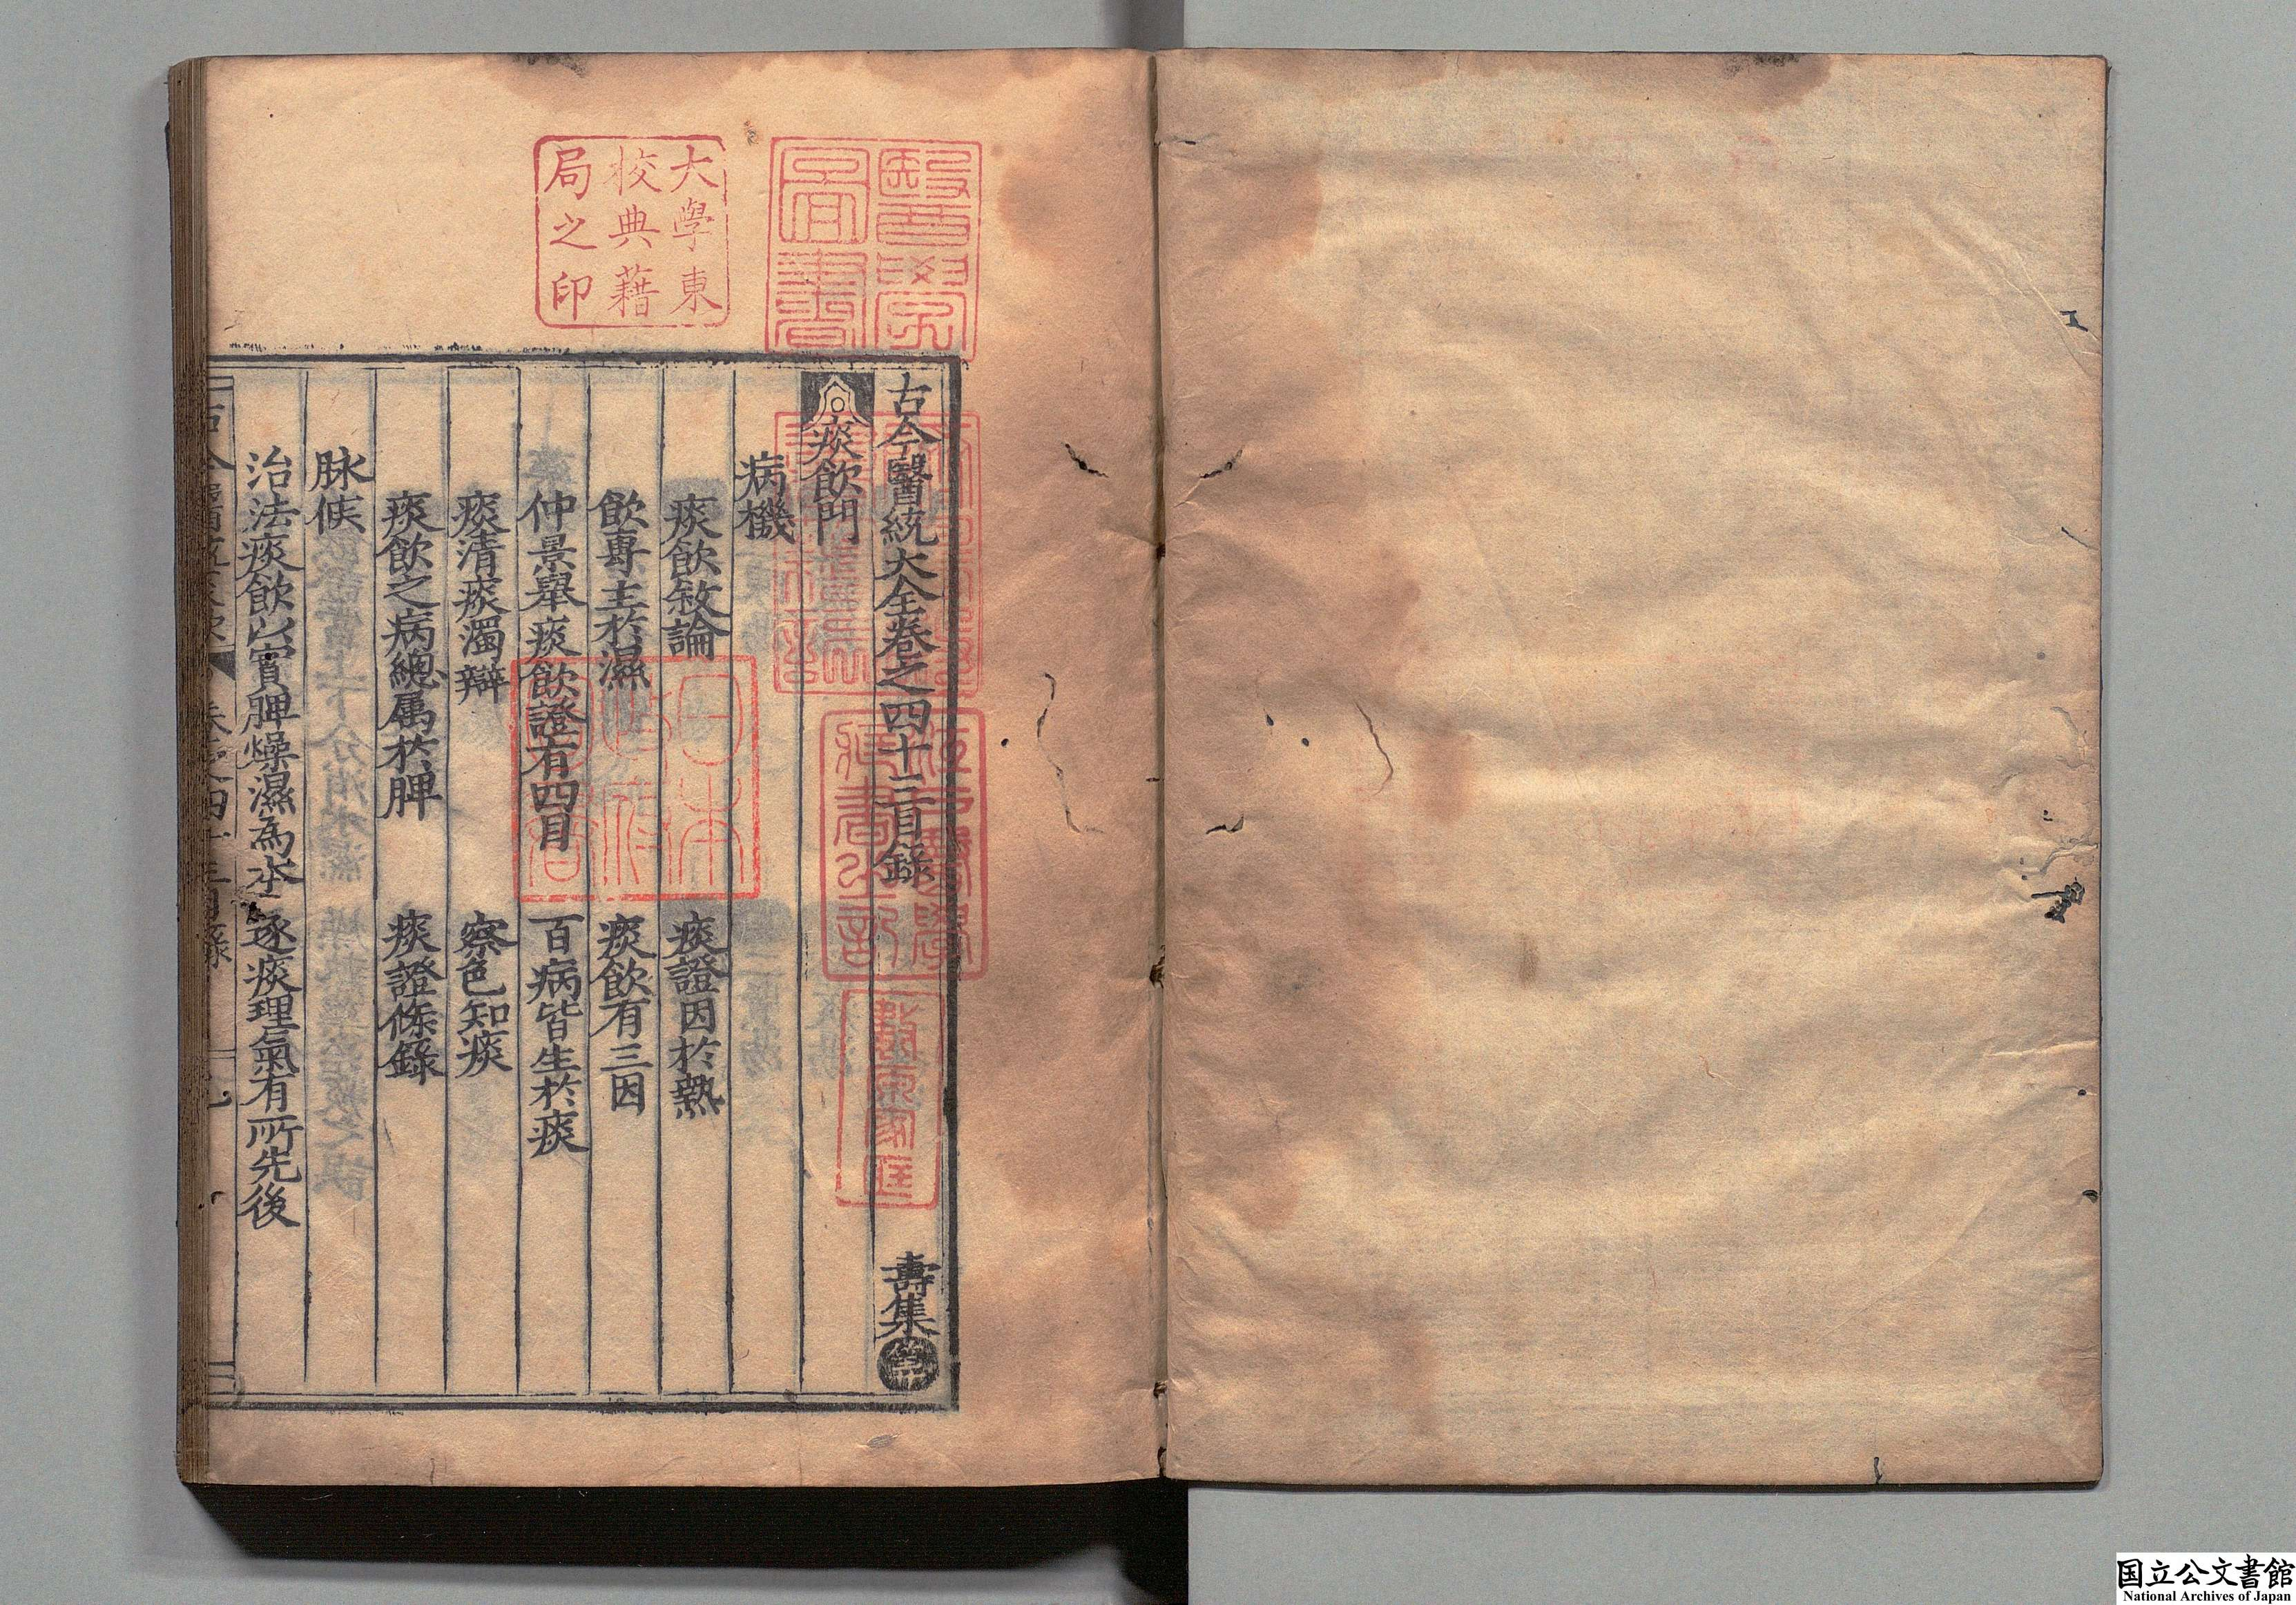 古今醫統大全卷之四十三目錄 壽集
痰飲門
病機
痰飲敘論 痰證因於熱
飲專主於濕 痰飲有三因
仲景舉痰飲證有四目 百病皆生於痰
痰清痰濁辯 察色知痰
痰飲之病總属於脾 痰證條錄
脉候
治法痰飲以實脾燥濕為本 逐痰理氣有所先後
大學東
校典藉
局之印
醫學
圖書
江戶醫學
藏書之記
日本
政府
圖書
国立公文書館
National Archives of Japan